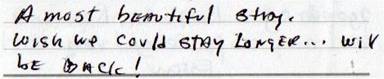 A most beautiful stay.
Wish we could stay longer... will
be back!